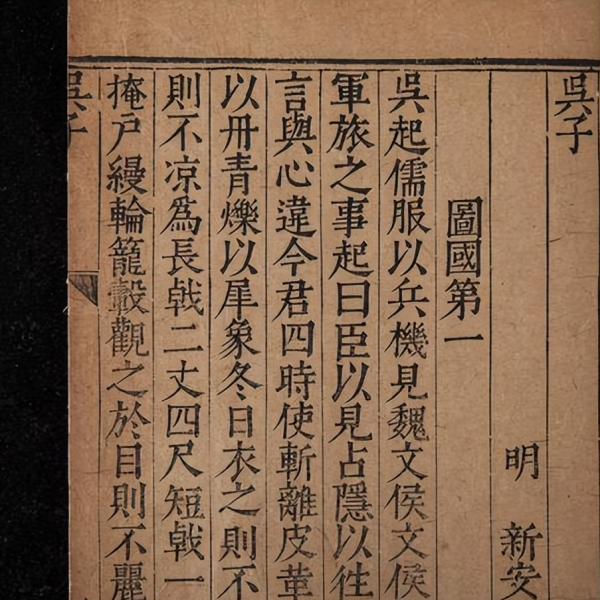 吳子
明 新安
圖國第一
吳起儒服以兵機見魏文侯文侯
軍旅之事起曰臣以見占隱以往
言與心違今君四時使斬離皮革
以丹青爍以犀象冬日衣之則不
則不凉爲長戟二丈四尺短戟一
掩戶縵輪籠轂觀之於目則不麗
吳子